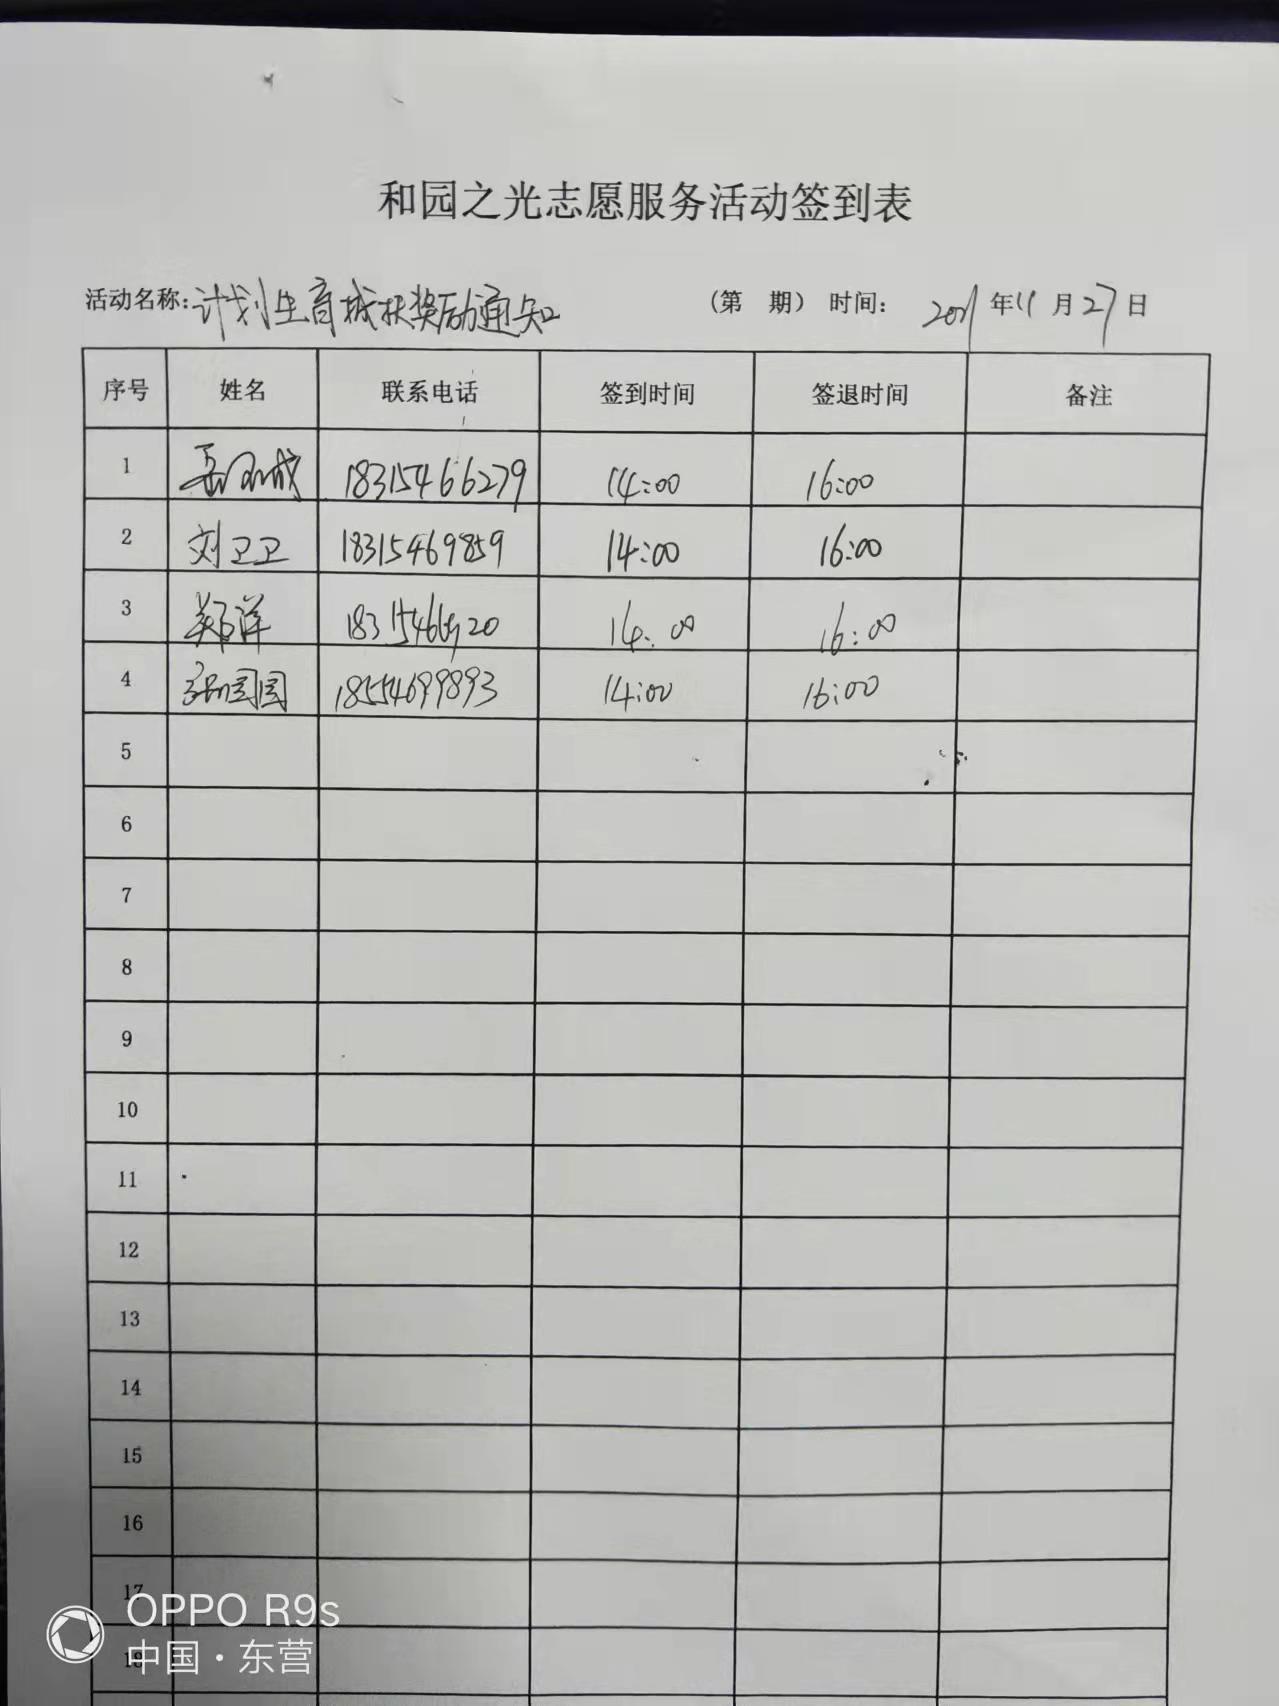 和园之光志愿服务活动签到表
活动名称:计划生育城扶奖励通知 (第 期) 时间: 2021年11月27日
序号 姓名 联系电话 签到时间 签退时间 备注
1 18315466279 14:00 16:00
2 刘卫卫 18315469859 14:00 16:00
3 郑洋 14:00 16:00
4 张园园 18554699893 14:00 16:00
5
6
7
8
9
10
11
12
13
14
15
16
17
18
OPPO R9s
中国·东营